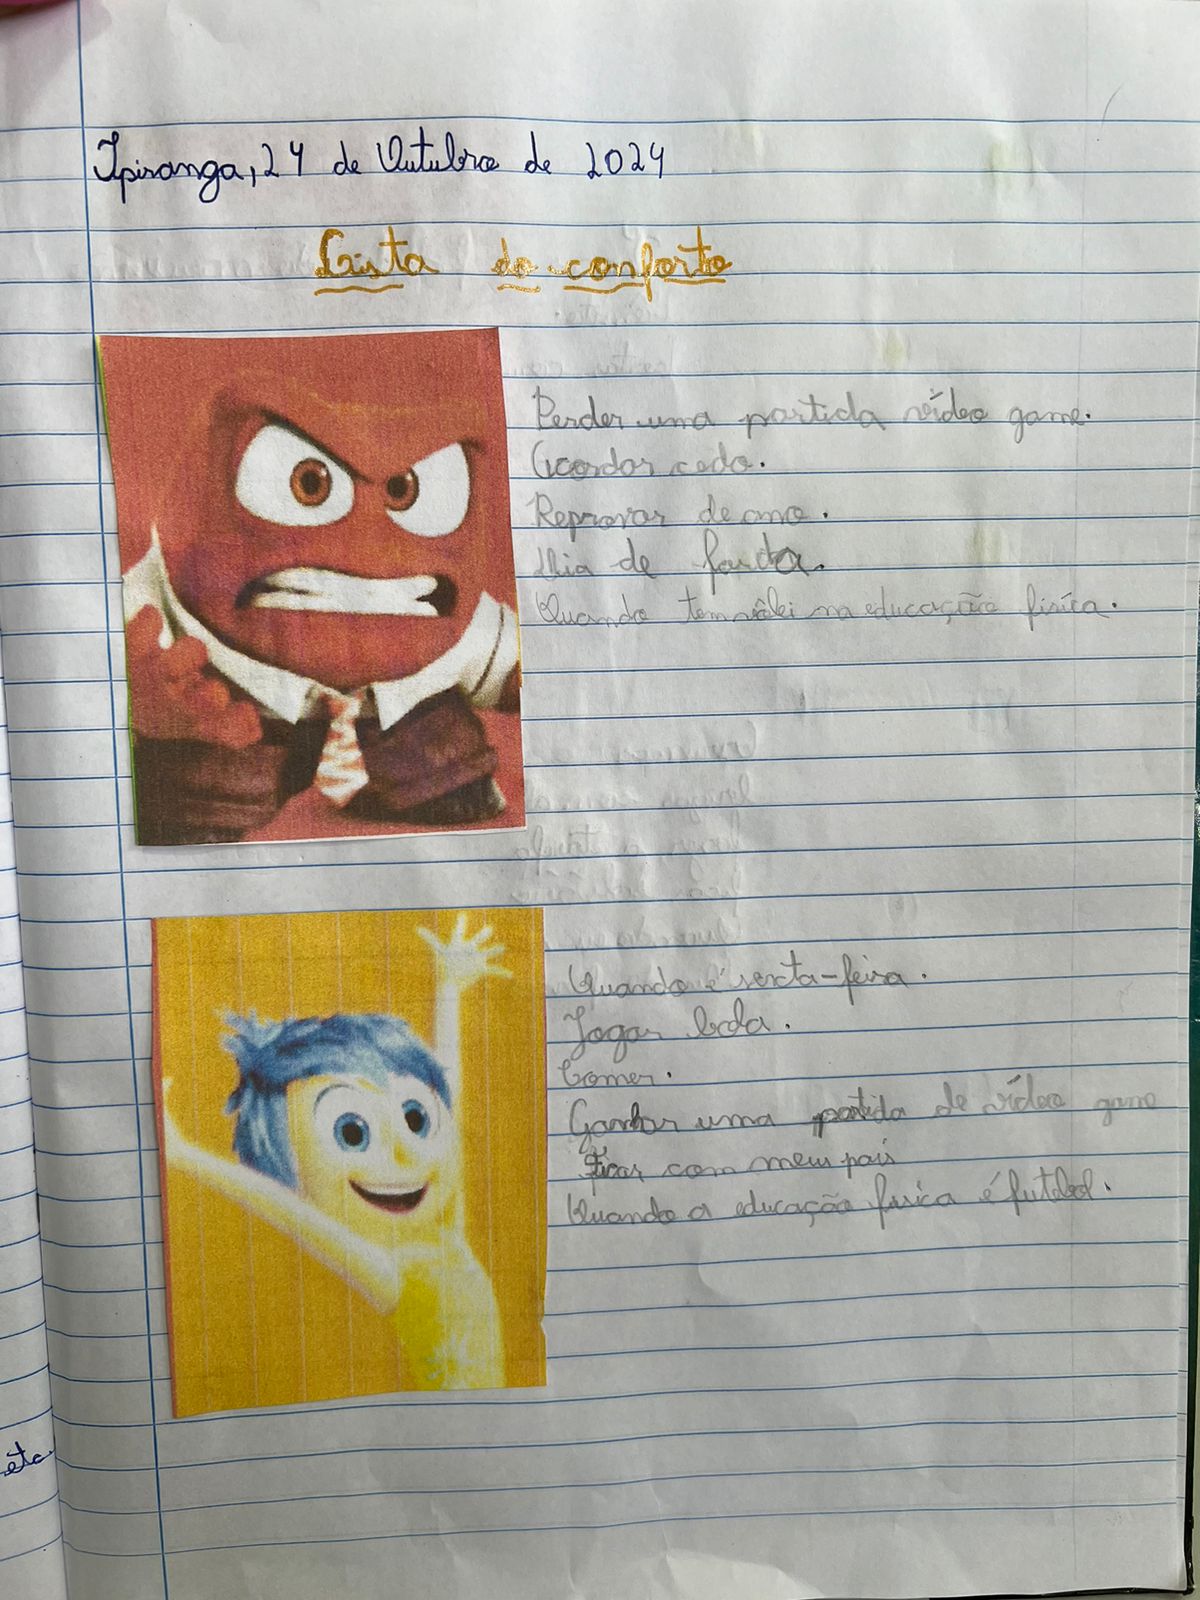 Ipiranga, 24 de Outubro de 2024
Lista do conforto
Perder uma partida vídeo game.
Acordar cedo.
Reprovar de ano.
Dia de farda.
Quando tem vôlei na educação fisíca.
Quando é sexta-feira.
Jogar bola.
Comer.
Ganhar uma partida de vídeo game
ficar com meus pais
Quando a educação fisica é futebol.
etc